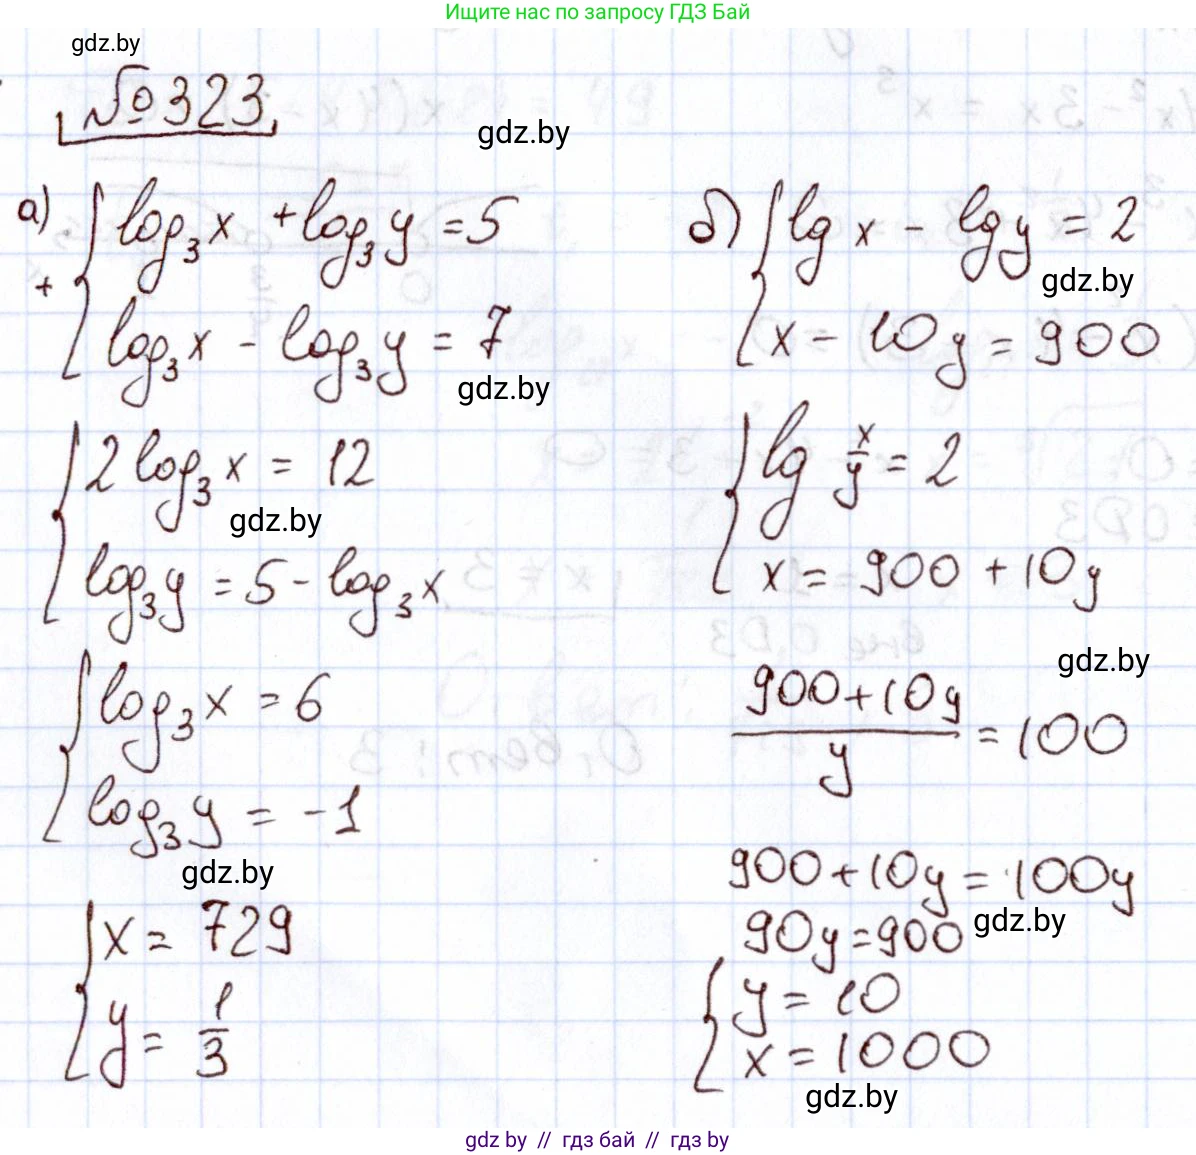 Ищите нас по запросу ГДЗ Бай
gdz.by
№323
gdz.by
а) log₃x + log₃y = 5
+
log₃x - log₃y = 7
gdz.by
2log₃x = 12
gdz.by
log₃y = 5 - log₃x
log₃x = 6
log₃y = -1
gdz.by
x = 729
y = 1/3
б) lg x - lg y = 2
gdz.by
x - 10y = 900
lg x/y = 2
x = 900 + 10y
gdz.by
(900+10y)/y = 100
900+10y = 100y
gdz.by
90y = 900
y = 10
x = 1000
gdz.by
gdz by // гдз бай // гдз by